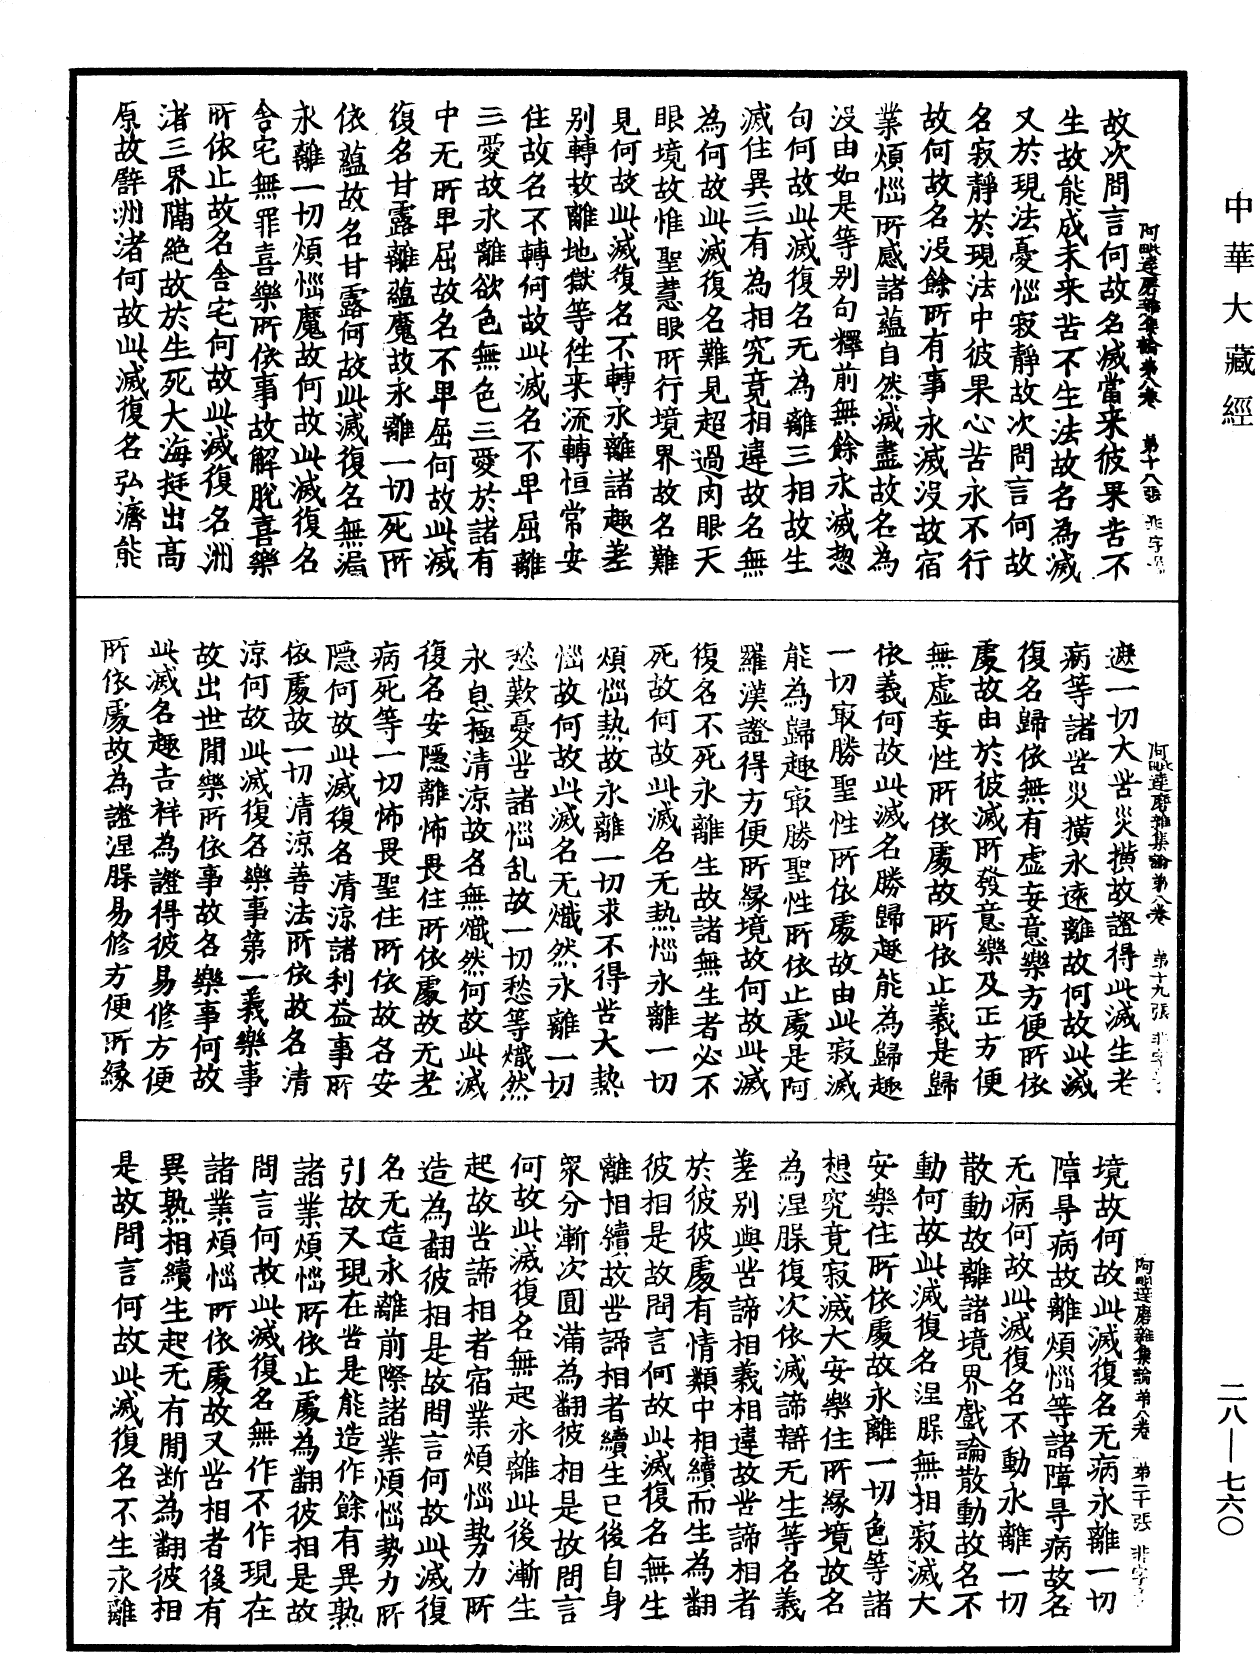 中華大藏經
阿毗達磨雜集論第八卷 第十八張 非字号
故次問言何故名滅當来彼果苦不
生故能成未来苦不生法故名為滅
又於現法憂惱寂靜故次問言何故
名寂靜於現法中彼果心苦永不行
故何故名没餘所有事永滅没故宿
業煩惱所感諸蘊自然滅盡故名為
没由如是等别句釋前無餘永滅惣
句何故此滅復名无為離三相故生
滅住異三有為相究竟相違故名無
為何故此滅復名難見超過肉眼天
眼境故惟聖慧眼所行境界故名難
見何故此滅復名不轉永離諸趣差
别轉故離地獄等徃来流轉恒常安
住故名不轉何故此滅名不卑屈離
三愛故永離欲色無色三愛於諸有
中无所卑屈故名不卑屈何故此滅
復名甘露離蘊魔故永離一切死所
依蘊故名甘露何故此滅復名無漏
永離一切煩惱魔故何故此滅復名
舍宅無罪喜樂所依事故解脫喜樂
所依止故名舍宅何故此滅復名洲
渚三界隔絶故於生死大海挺出高
原故譬洲渚何故此滅復名弘濟能
阿毗達磨雜集論第八卷 第十九張 非字号
遮一切大苦災撗故證得此滅生老
病等諸苦災撗永遠離故何故此滅
復名歸依無有虚妄意樂方便所依
處故由於彼滅所發意樂及正方便
無虚妄性所依處故所依止義是歸
依義何故此滅名勝歸趣能為歸趣
一切冣勝聖性所依處故由此寂滅
能為歸趣冣勝聖性所依止處是阿
羅漢證得方便所緣境故何故此滅
復名不死永離生故諸無生者必不
死故何故此滅名无熱惱永離一切
煩惱熱故永離一切求不得苦大熱
惱故何故此滅名无熾然永離一切
愁歎憂苦諸惱乱故一切愁等熾然
永息極清涼故名無熾然何故此滅
復名安隱離怖畏住所依處故无老
病死等一切怖畏聖住所依故名安
隱何故此滅復名清涼諸利益事所
依處故一切清涼善法所依故名清
涼何故此滅復名樂事第一義樂事
故出世間樂所依事故名樂事何故
此滅名趣吉祥為證得彼易修方便
所依處故為證涅槃易修方便所緣
阿毗達磨雜集論第八卷 第二十張 非字号
境故何故此滅復名无病永離一切
障㝵病故離煩惱等諸障㝵病故名
无病何故此滅復名不動永離一切
散動故離諸境界戲論散動故名不
動何故此滅復名涅槃無相寂滅大
安樂住所依處故永離一切色等諸
想究竟寂滅大安樂住所緣境故名
為涅槃復次依滅諦辯无生等名義
差别與苦諦相義相違故苦諦相者
於彼彼處有情類中相續而生為翻
彼相是故問言何故此滅復名無生
離相續故苦諦相者續生已後自身
衆分漸次圓滿為翻彼相是故問言
何故此滅復名無起永離此後漸生
起故苦諦相者宿業煩惱勢力所
造為翻彼相是故問言何故此滅復
名无造永離前際諸業煩惱勢力所
引故又現在苦是能造作餘有異熟
諸業煩惱所依止處為翻彼相是故
問言何故此滅復名無作不作現在
諸業煩惱所依處故又苦相者後有
異熟相續生起无有間断為翻彼相
是故問言何故此滅復名不生永離
二八—七六〇